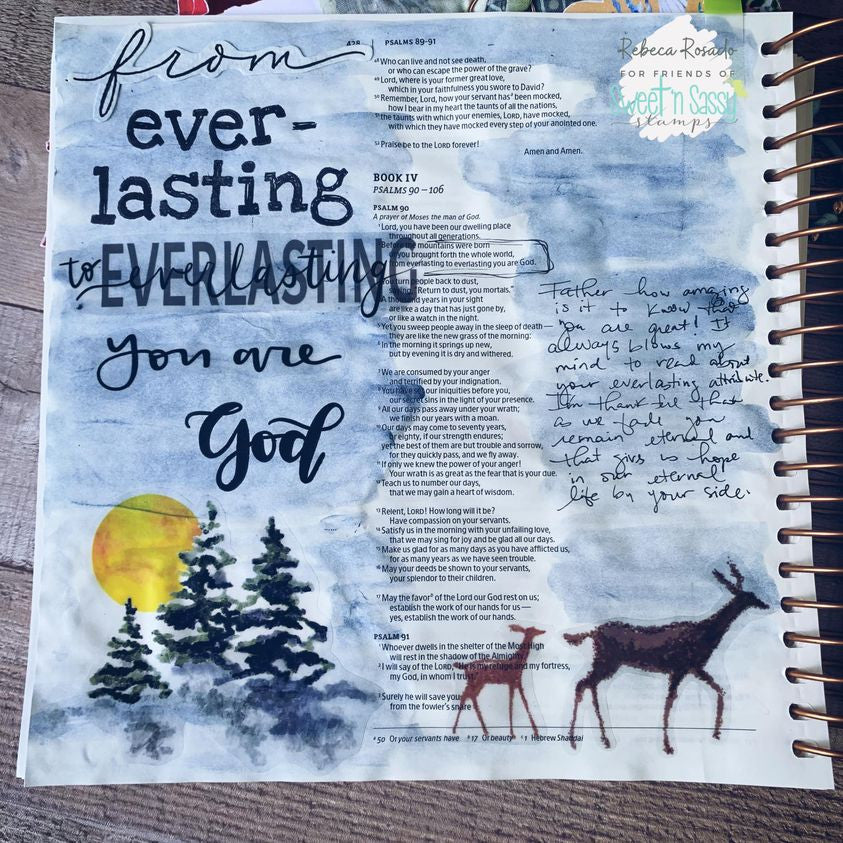 from
ever-
lasting
to everlasting
EVERLASTING
you are
God
428 PSALMS 89-91
48 Who can live and not see death,
or who can escape the power of the grave?
49 Lord, where is your former great love,
which in your faithfulness you swore to David?
50 Remember, Lord, how your servant has a been mocked,
how I bear in my heart the taunts of all the nations,
51 the taunts with which your enemies, LORD, have mocked,
with which they have mocked every step of your anointed one.
52 Praise be to the LORD forever!
Amen and Amen.
BOOK IV
PSALMS 90 – 106
PSALM 90
A prayer of Moses the man of God.
1 Lord, you have been our dwelling place
throughout all generations.
2 Before the mountains were born
you brought forth the whole world,
from everlasting to everlasting you are God.
3 You turn people back to dust,
saying, "Return to dust, you mortals."
4 A thousand years in your sight
are like a day that has just gone by,
or like a watch in the night.
5 Yet you sweep people away in the sleep of death—
they are like the new grass of the morning:
6 In the morning it springs up new,
but by evening it is dry and withered.
7 We are consumed by your anger
and terrified by your indignation.
8 You have set our iniquities before you,
our secret sins in the light of your presence.
9 All our days pass away under your wrath;
we finish our years with a moan.
10 Our days may come to seventy years,
or eighty, if our strength endures;
yet the best of them are but trouble and sorrow,
for they quickly pass, and we fly away.
11 If only we knew the power of your anger!
Your wrath is as great as the fear that is your due.
12 Teach us to number our days,
that we may gain a heart of wisdom.
13 Relent, LORD! How long will it be?
Have compassion on your servants.
14 Satisfy us in the morning with your unfailing love,
that we may sing for joy and be glad all our days.
15 Make us glad for as many days as you have afflicted us,
for as many years as we have seen trouble.
16 May your deeds be shown to your servants,
your splendor to their children.
17 May the favor b of the Lord our God rest on us;
establish the work of our hands for us—
yes, establish the work of our hands.
PSALM 91
1 Whoever dwells in the shelter of the Most High
will rest in the shadow of the Almighty. c
2 I will say of the LORD, "He is my refuge and my fortress,
my God, in whom I trust."
3 Surely he will save you
from the fowler's snare
a 50 Or your servants have b 17 Or beauty c 1 Hebrew Shaddai
Father how amazing
is it to know that
you are great! It
always blows my
mind to read about
your everlasting attribute.
I'm thankful that
as we fade you
remain eternal and
that gives us hope
in our eternal
life by your side.
Rebeca Rosado
FOR FRIENDS OF
Sweet 'n Sassy
stamps